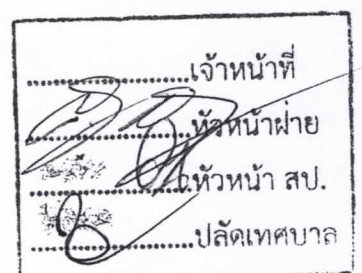 ....................เจ้าหน้าที่
....................หัวหน้าฝ่าย
....................หัวหน้า สป.
....................ปลัดเทศบาล